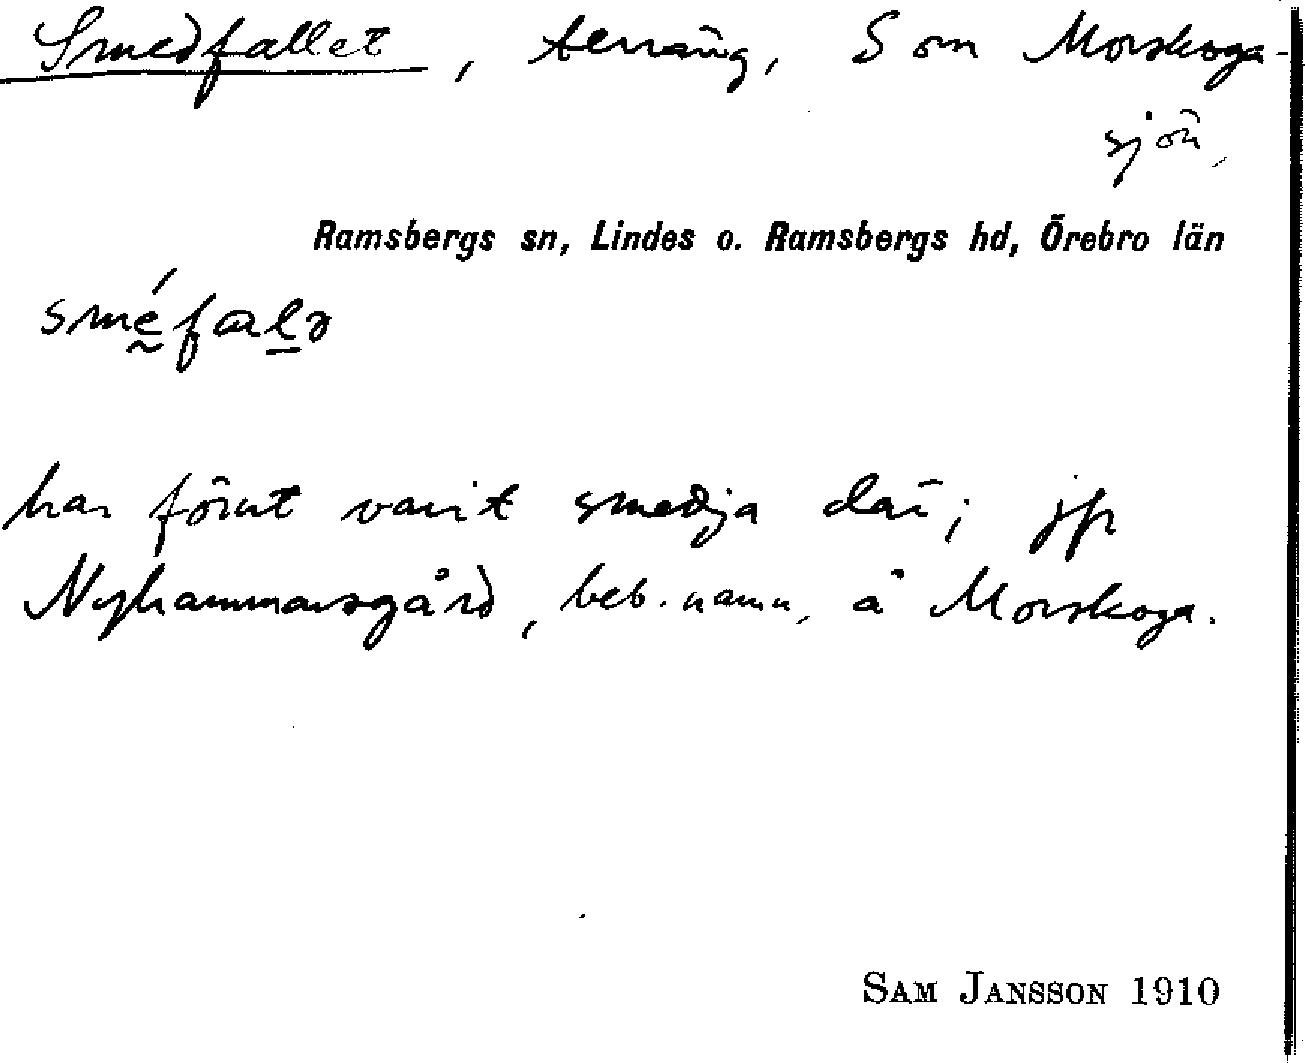 Smedfallet, terräng, S om Morskoga-
sjön,
Ramsbergs sn, Lindes o. Ramsbergs hd, Örebro län
sméfalə
har förut varit smedja där; jfr
Nyhammarsgård, beb.namn, å Morskoga.
SAM JANSSON 1910